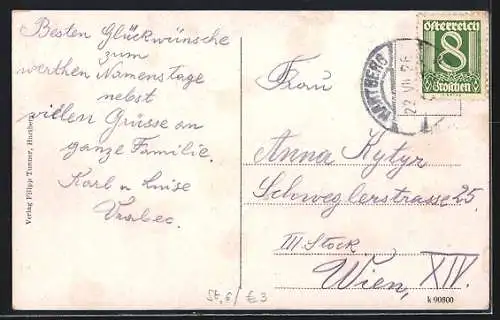 Besten Glückwünsche
zum
werthen Namenstage
nebst
vielen Grüsse an
ganze Familie.
Karl u Luise
Vrabec.
Verlag Filipp Tommer, Hartberg
österreich
8
Groschen
HARTBERG
22 VII 26
Frau
Anna Kytyr
Schweglerstrasse 25.
III Stock
Wien, XIV.
St, 6/ € 3
k 90800